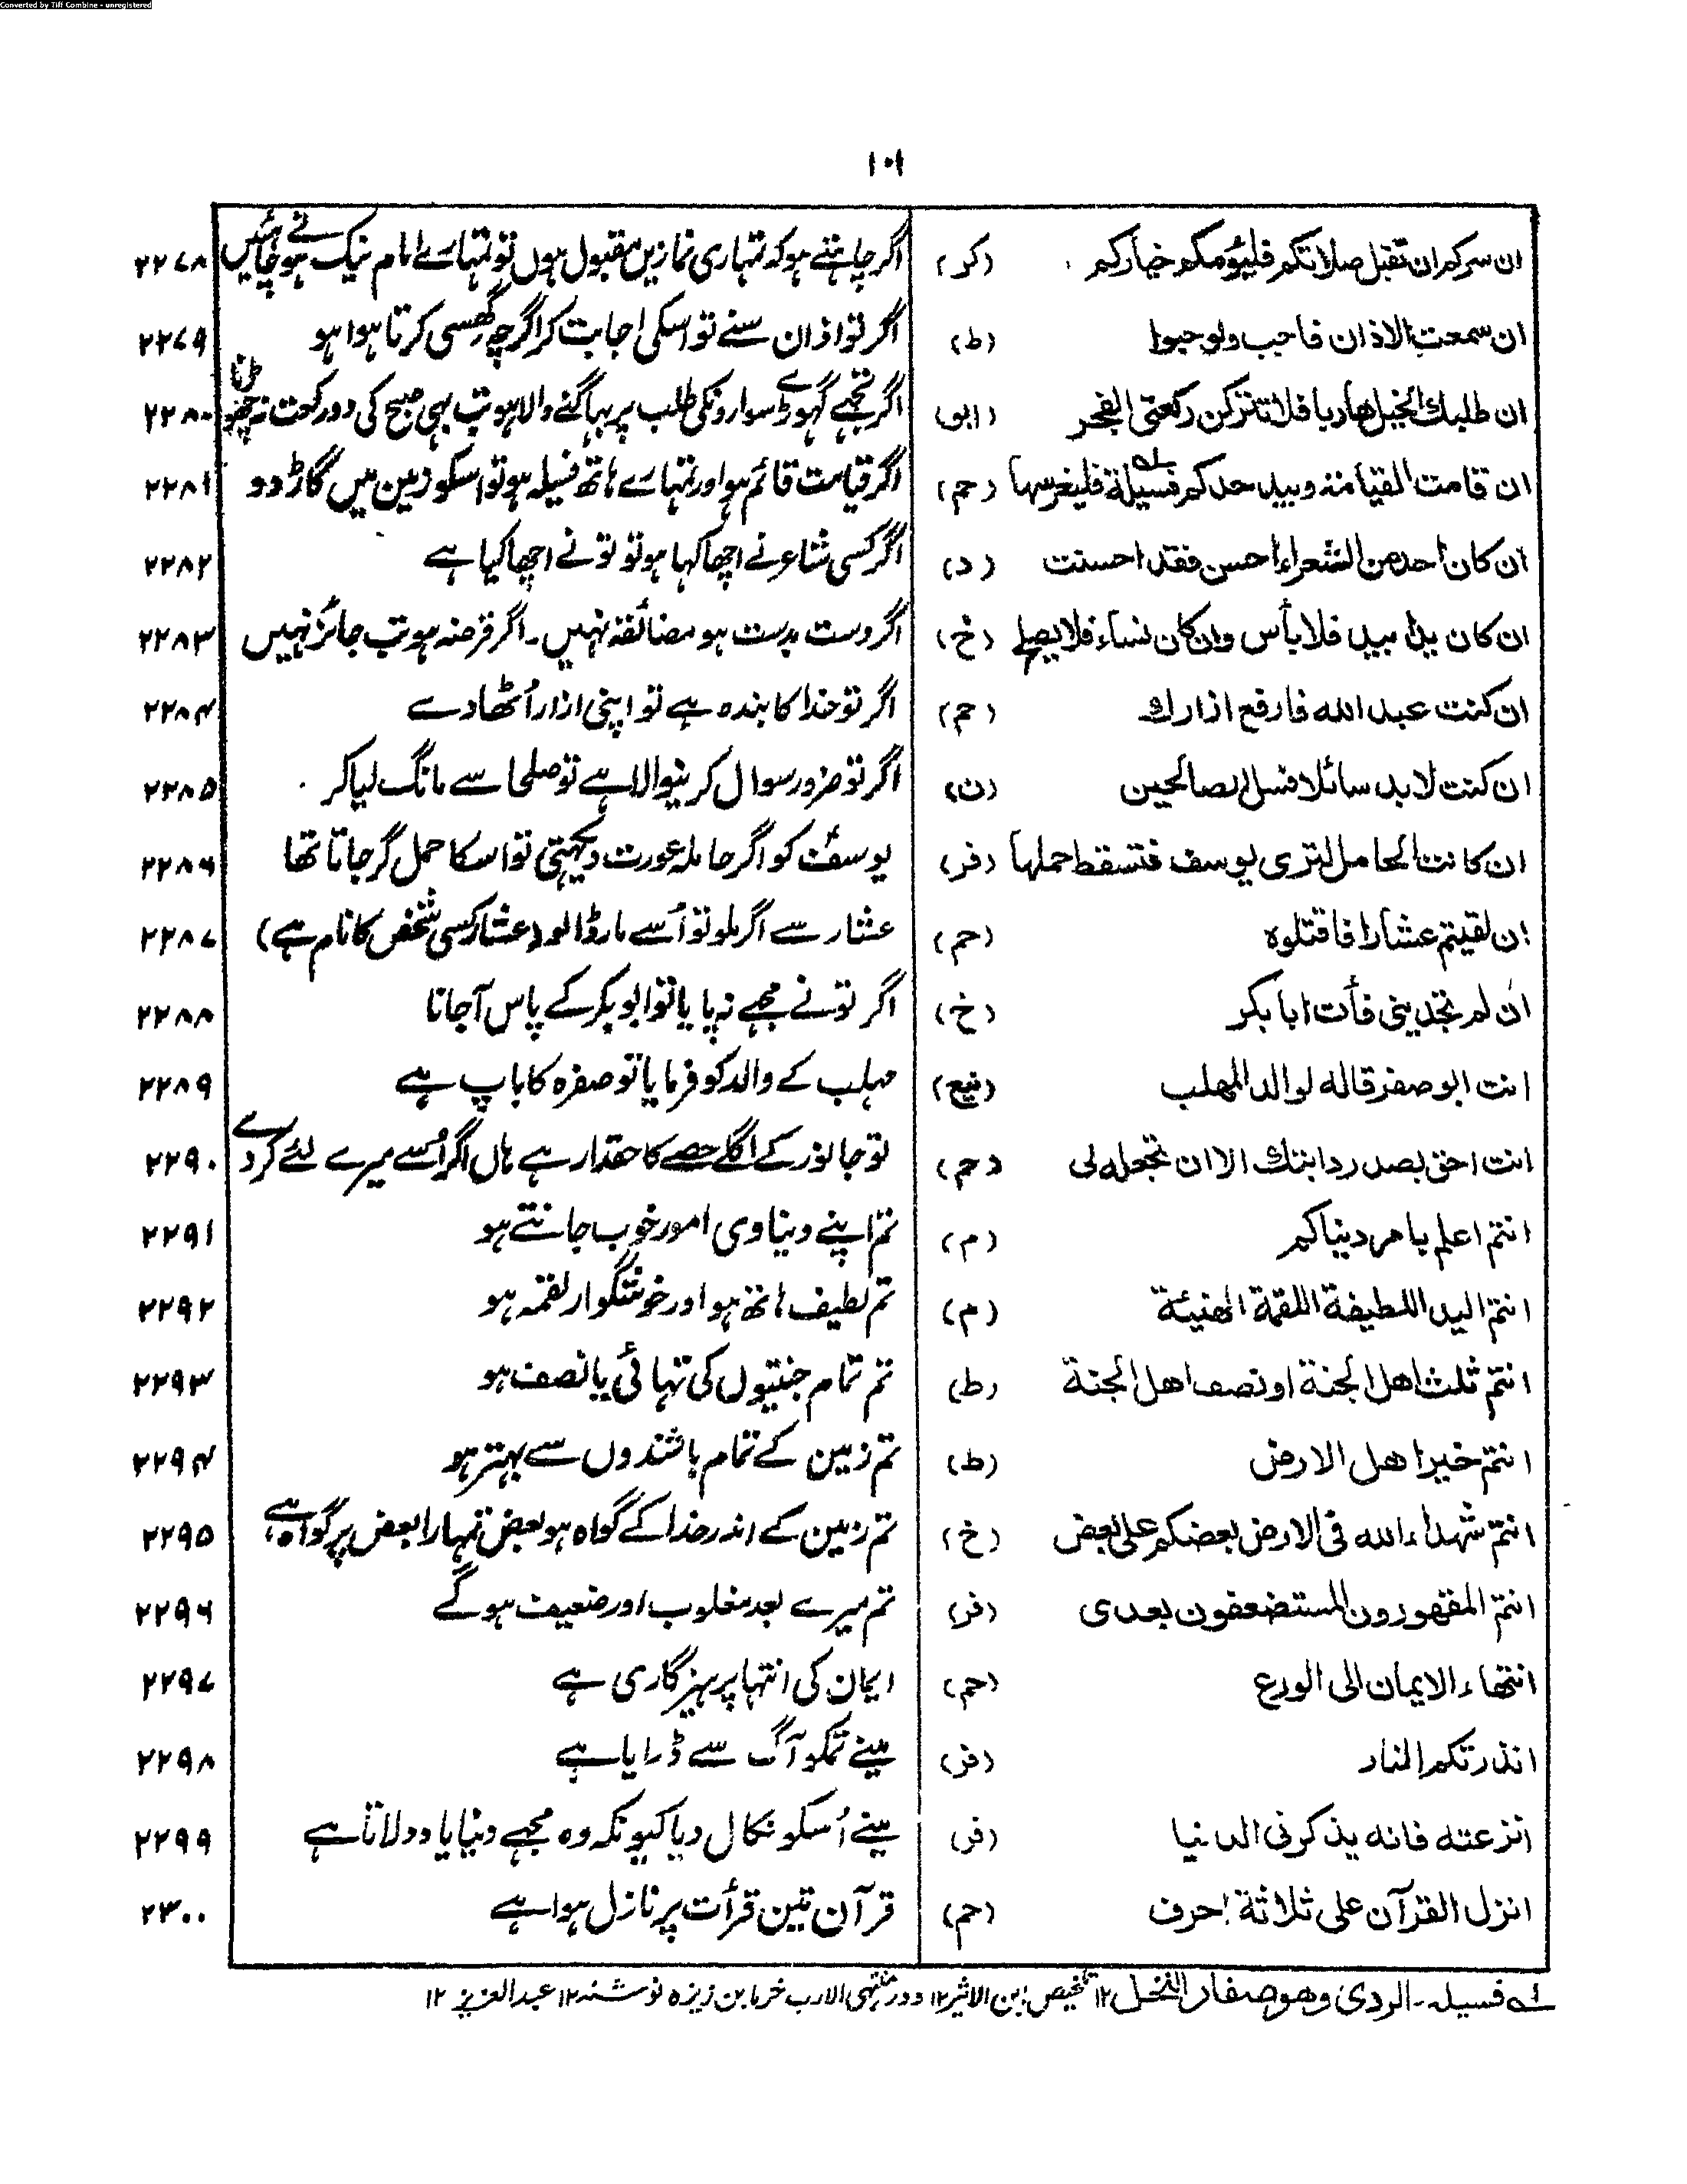 Converted by Tiff Combine - unregistered
۱۰۱
ان سرکم ان تقبل صلاتکم فلیؤمکم خیارکم (کر) اگر چاہتے ہو کہ تمہاری نمازیں مقبول ہوں تو تمہارے امام نیک ہونے چاہئیں ۲۲۷۸
ان سمعت الاذان فاجب ولو حبوا (ط) اگر تو اذان سنے تو اسکی اجابت کر اگرچہ گھسی کرتا ہوا ہو ۲۲۷۹
ان طلبك الخیل هاربا فلا تترکن رکعتی الفجر (ابو) اگر تجہے گہوڑے سوارونکی طلب پر بہاگنے والا ہو تب بہی صبح کی دو رکعت نہ چھوڑنا ۲۲۸۰
ان قامت القیامة وبید حدکم فسیلة فلیغرسها (حم) اگر قیامت قائم ہو اور تمہارے ہاتھ فسیلہ ہو تو اسکو زمین میں گاڑ دو ۲۲۸۱
ان کان احد من الشعراء احسن فقد احسنت (د) اگر کسی شاعر نے اچھا کہا ہو تو تو نے اچھا کیا ہے ۲۲۸۲
ان کان یدا بید فلا بأس وان کان نساء فلا یصلح (خ) اگر دست بدست ہو مضائقہ نہیں۔ اگر قرضہ ہو تب جائز نہیں ۲۲۸۳
ان کنت عبد الله فارفع ازارك (حم) اگر تو خدا کا بندہ ہے تو اپنی ازار اُٹھا دے ۲۲۸۴
ان کنت لا بد سائلا فسل الصالحین (ن) اگر تو ضرور سوال کرنیوالا ہے تو صلحا سے مانگ لیا کر ۲۲۸۵
ان کانت الحامل لتری یوسف فتسقط حملها (فر) یوسف کو اگر حاملہ عورت دیکہتی تو اسکا حمل گر جاتا تھا ۲۲۸۶
ان لقیتم عشارا فاقتلوه (حم) عشار سے اگر ملو تو اُسے مار ڈالو (عشار کسی شخص کا نام ہے) ۲۲۸۷
ان لم تجدینی فأت ابا بکر (خ) اگر تو نے مجہے نہ پایا تو ابوبکر کے پاس آجانا ۲۲۸۸
انت ابو صفرة قاله لوالد المهلب مہلب کے والد کو فرمایا تو صفرہ کا باپ ہے ۲۲۸۹
انت احق بصدر دابتك الا ان تجعله لی (حم) تو جانور کے اگلے حصے کا حقدار ہے ہاں اگر اُسے میرے لئے کردے ۲۲۹۰
انتم اعلم بامر دنیاکم (م) تم اپنے دنیاوی امور خوب جانتے ہو ۲۲۹۱
انتم الید اللطیفة اللقمة الهنیئة (م) تم لطیف ہاتھ ہو اور خوشگوار لقمہ ہو ۲۲۹۲
انتم ثلث اهل الجنة او نصف اهل الجنة (ط) تم تمام جنتیوں کی تہائی یا نصف ہو ۲۲۹۳
انتم خیر اهل الارض (ط) تم زمین کے تمام باشندوں سے بہتر ہو ۲۲۹۴
انتم شهداء الله فی الارض بعضکم علی بعض (خ) تم زمین کے اندر خدا کے گواہ ہو بعض تمہارا بعض پر گواہ ہے ۲۲۹۵
انتم المقهورون المستضعفون بعدی (فر) تم میرے بعد مغلوب اور ضعیف ہو گے ۲۲۹۶
انتهاء الایمان الی الورع (حم) ایمان کی انتہا پرہیزگاری ہے ۲۲۹۷
انذرتکم النار (فر) مینے تمکو آگ سے ڈرایا ہے ۲۲۹۸
انزعته فانه یذکرنی الدنیا (فر) مینے اُسکو نکال دیا کیونکہ وہ مجہے دنیا یاد دلاتا ہے ۲۲۹۹
انزل القرآن علی ثلاثة احرف (حم) قرآن تین قرأت پر نازل ہوا ہے ۲۳۰۰
۱ه فسیلہ۔ الردی وهو صغار النخل ۱۲ تلخیص ابن الاثیر ۱۲ ودر منتہی الارب خرما بن ریزہ نوشتہ ۱۲ عبد العزیز ۱۲